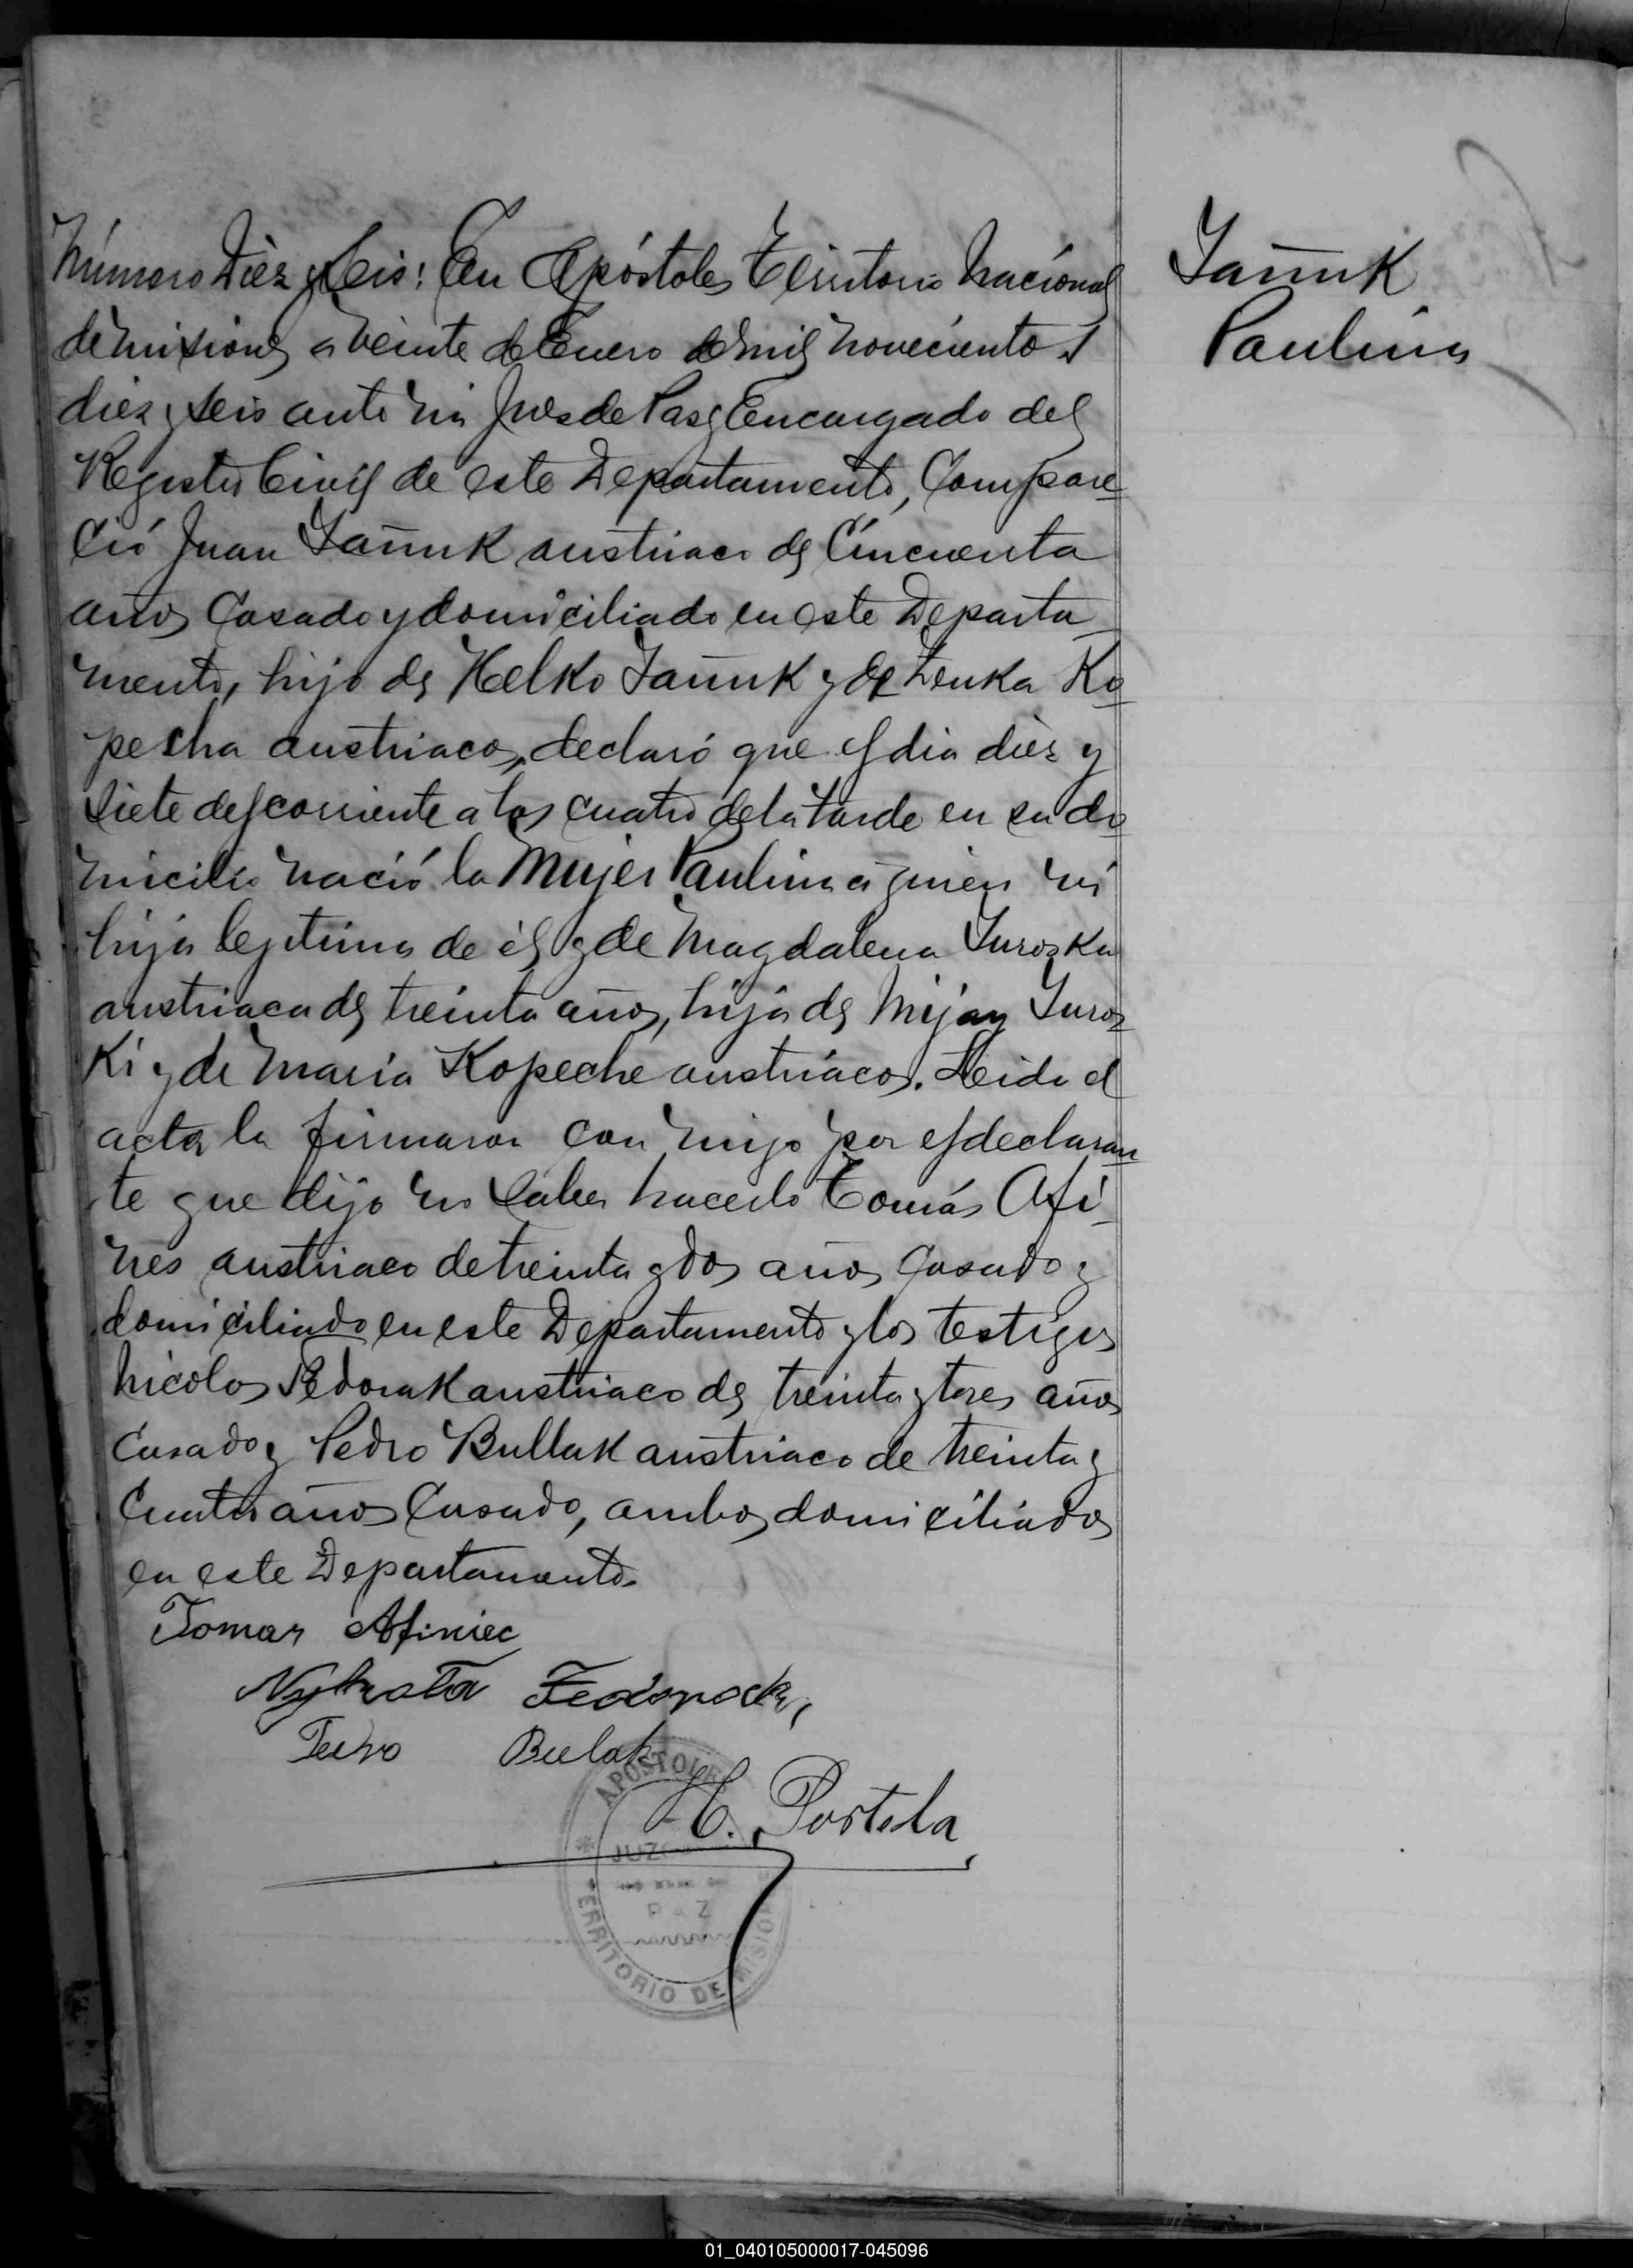 Número Diez y Seis: En Apóstoles Territorio Nacional
de Misiones a veinte de Enero de mil novecientos
diez y seis ante mi Jues de Pas y Encargado del
Registro Civil de este Departamento, Compare
ció Juan Yañuk austriaco de Cincuenta
años Casado y domiciliado en este Departa
mento, hijo de Helko Yañuk y de Zenka Ko
pecha austriacos, declaró que el dia dies y
siete del corriente a las cuatro de la tarde en su do
micilio nació la Mujer Paulina a quien vi
hija legitima de él y de Magdalena Yuroska
austriaca de treinta años, hija de Mijay Yuros
ki y de Maria Kopeche austriacos. Leida el
acta la firmaron con migo por el declaran
te que dijo no saber hacerlo Tomás Afi
nes austriaco de treinta y dos años Casado y
domiciliado en este Departamento y los testigos
Nicolas Fedorak austriaco de treinta y tres años
Casado y Pedro Bullak austriaco de treinta y
Cuatro años Casado, ambos domiciliados
en este Departamento.
Yañuk
Paulina
Tomas Afiniec
Fedorack,
Pedro Bulak
H. Portela
APOSTOLES
JUZ
PAZ
TERRITORIO DE MISIONES
01_040105000017-045096